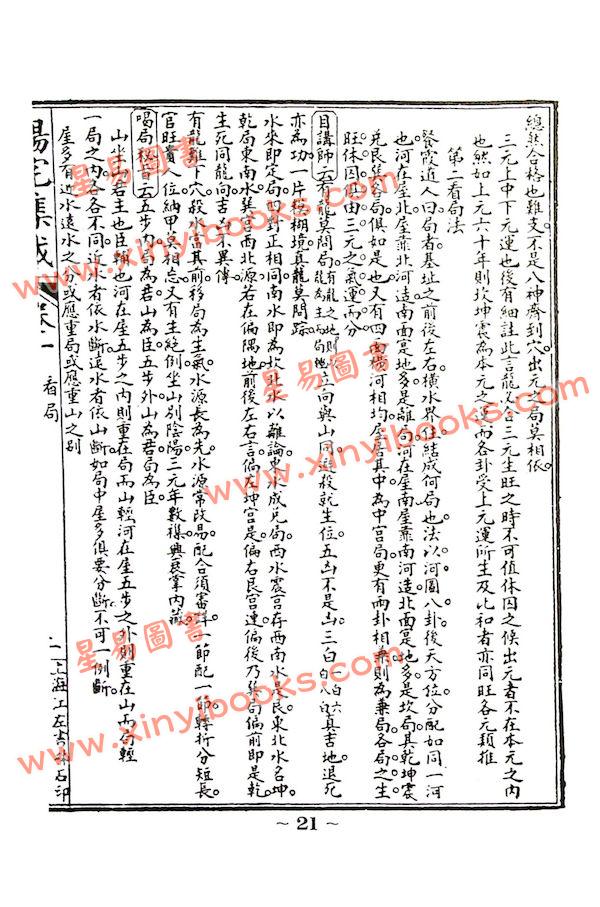 總無合格也難支不是八神齊到穴出元之局莫相依
三元上中下元運也後有細註此言龍以合三元生旺之時不可值休囚之候出元者不在本元之內
也然如上元六十年則坎坤震為本元之運而各卦受上元運所生及比和者亦同旺各元類推
第二看局法
餐霞道人曰局者基址之前後左右橫水界住結成何局也法以河圖八卦後天方位分配如同一河
也河在屋北屋靠北河造南面是地多是離局河在屋南屋靠南河造北面是地多是坎局其乾坤震
兌艮巽各局俱如是也又有四面環河相均屋居其中為中宮局更有兩卦相兼則為兼局各局之生
旺休囚俱由三元之氣運而分
目講師云有龍莫問局有龍之地則龍為主而局輕立向與山同避殺就生位五凶不是凶三白一白六白八白真吉地退死
亦為功一片模糊境真龍莫問踪
水來即定局叩對正相同南水即為坎北水以離論東水成兌局西水震宮存西南水是艮東北水名坤
乾局東南水巽宮西北源若在偏隅地前後左右言偏左坤宮是偏右艮宮連偏後乃巽局偏前即是乾
生死同龍向吉凶不異傳
有龍難下穴殺水當其前移局為生氣水源長為先水源常改易配合須審詳一節配一節轉折分短長
官旺貴人位納甲莫相忘又有生絕倒坐山別陰陽三元年數穫興衰掌內藏
喝局秘旨云五步內局為君山為臣五步外山為君局為臣
山坐山君主也臣輔也河在屋五步之內則重在局而山輕河在屋五步之外則重在山而局輕
一局之內各各不同近水者依水斷遠水者依山斷如局中屋多俱要分斷不可一例斷
屋多有近水遠水之分或應重局或應重山之別
陽宅集成
卷一
看局
一
上海江左書林石印
~ 21 ~
星易圖書
www.xinyibooks.com
星易圖書
www.xinyibooks.com
星易圖書
www.xinyibooks.com